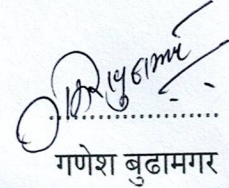 गणेश बुढामगर